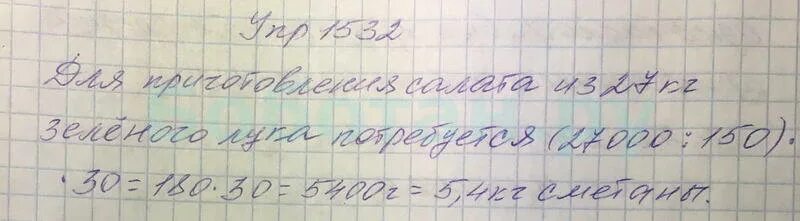 Упр 1532
Для приготовления салата из 27 кг
зелёного лука потребуется (27000 : 150) ·
· 30 = 180 · 30 = 5400г = 5,4кг сметаны.